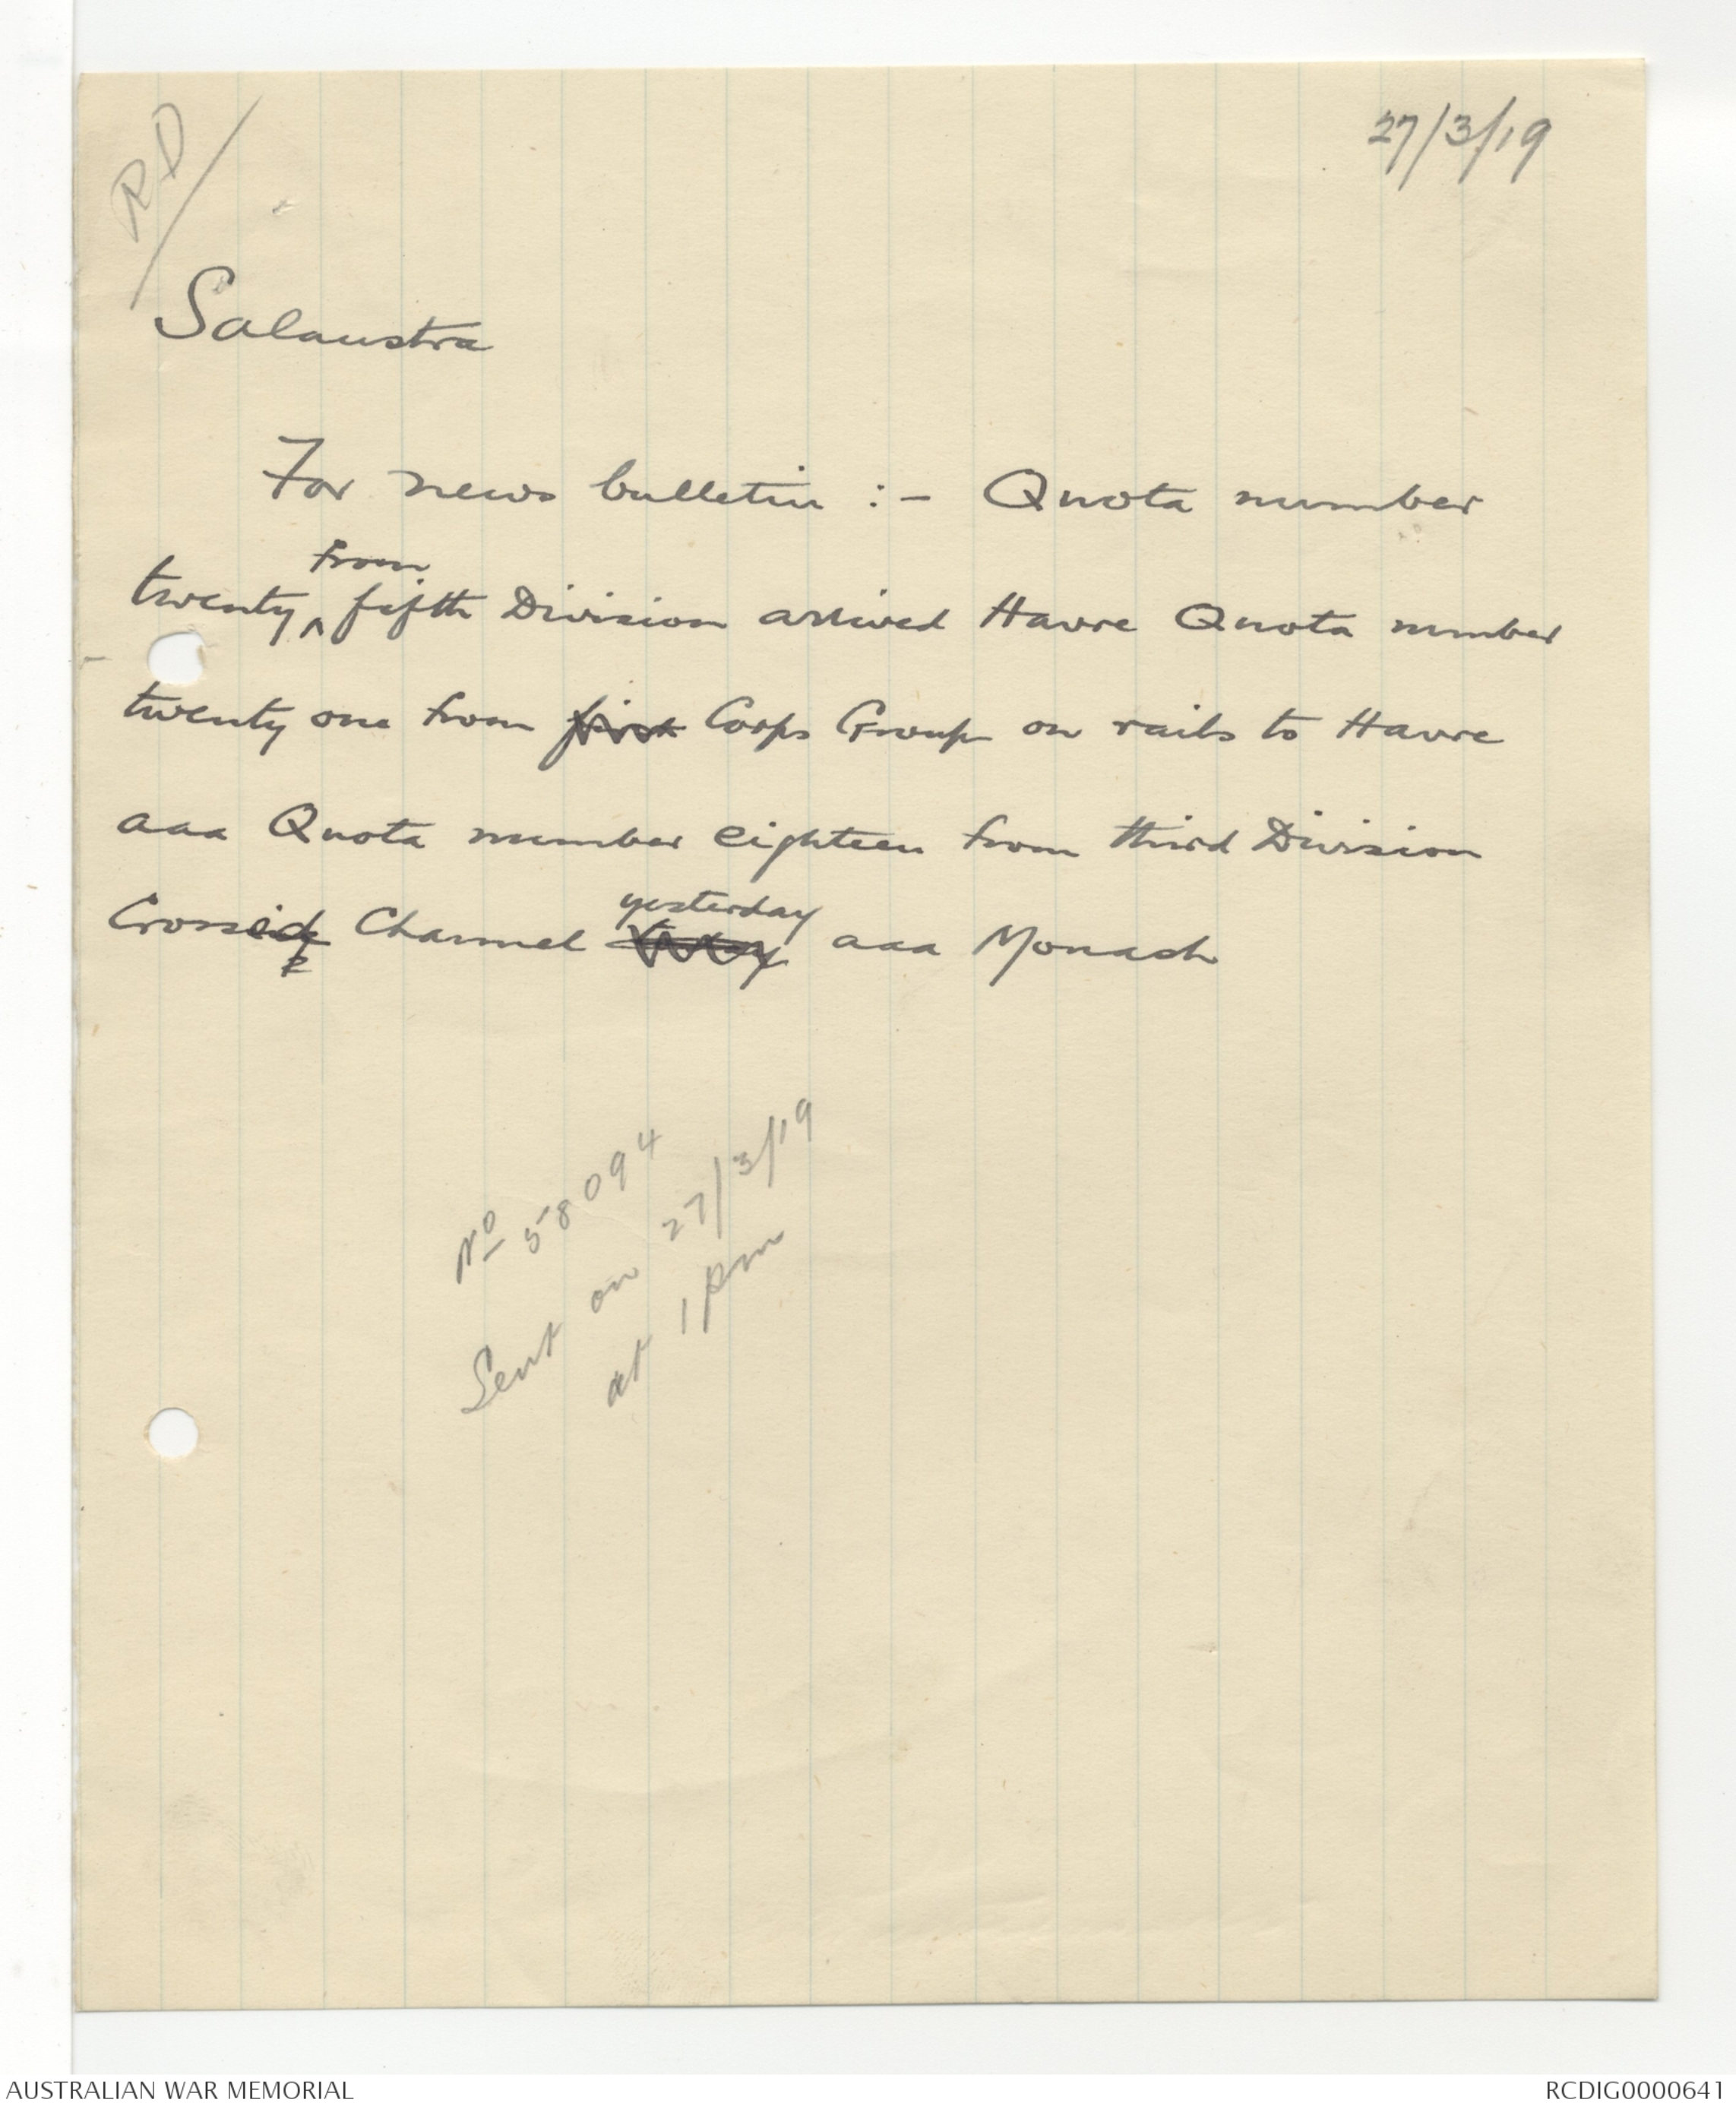 RD
27/3/19
Salaustra
For news bulletin :- Quota number
from
twenty ^ fifth Division arrived Havre Quota number
twenty one from first Corps Group on rails to Havre
aaa Quota number eighteen from third Division
Crossed Channel yesterday aaa Monash
No 58094
Sent on 27/3/19
at 1 pm
AUSTRALIAN WAR MEMORIAL
RCDIG0000641